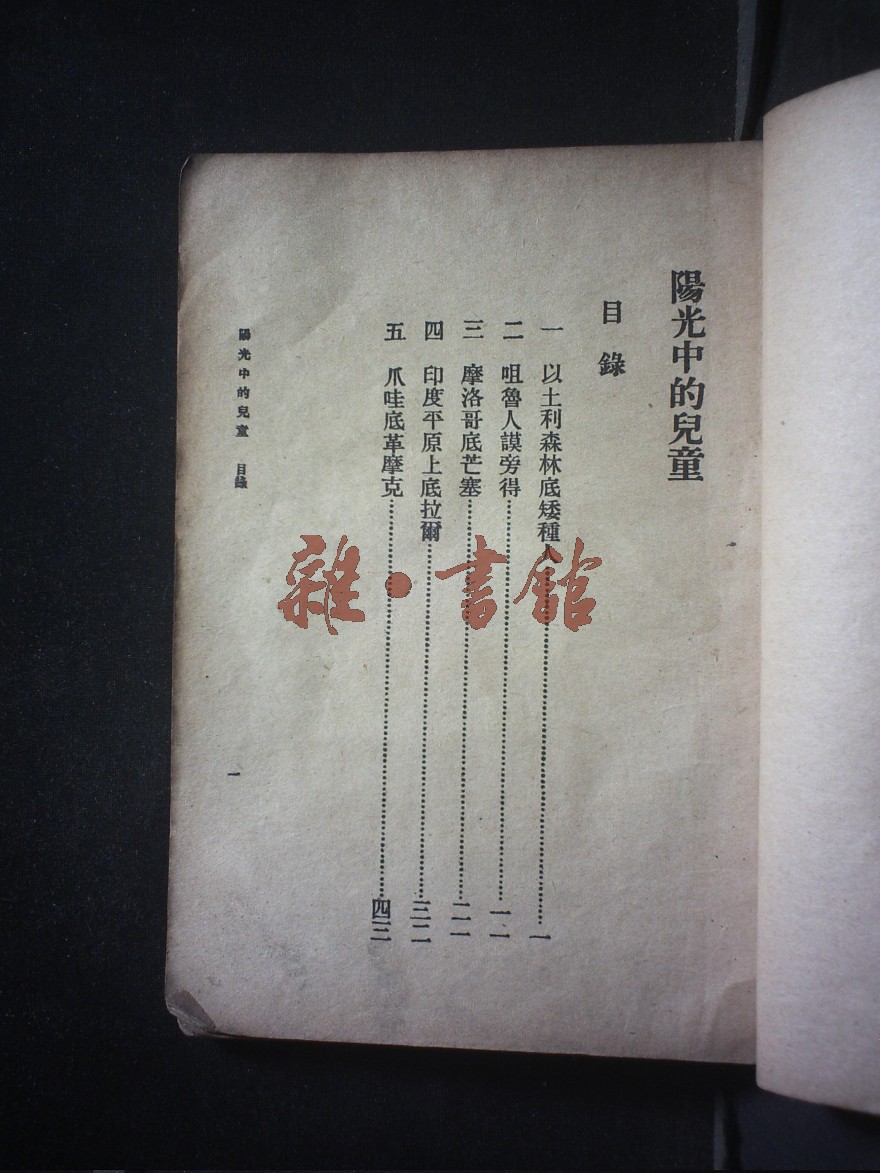 陽光中的兒童
目錄
一 以土利森林底矮種人……一
二 咀魯人謨旁得……一一
三 摩洛哥底芒塞……二一
四 印度平原上底拉爾……三二
五 爪哇底革摩克……四三
陽光中的兒童 目錄
一
雜·書館